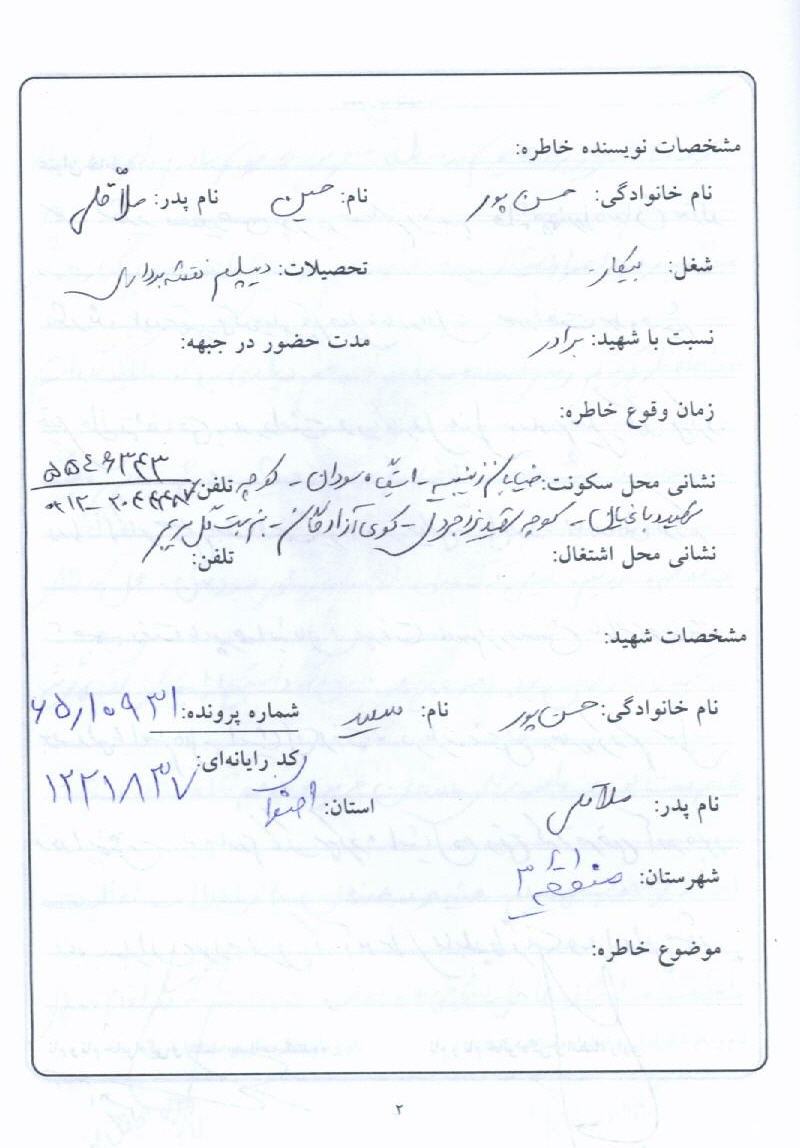 مشخصات نویسنده خاطره:
نام خانوادگی: حسن پور نام: حسین نام پدر: ملّا قلی
شغل: بیکار- تحصیلات: دیپلم نقشه برداری
نسبت با شهید: برادر مدت حضور در جبهه:
زمان وقوع خاطره:
نشانی محل سکونت: خیابان زینبیه - ایستگاه سودان - کوچه تلفن: ۵۵۴۶۳۴۳
کوچه شهید - کوی آزادگان - بن بست گل مریم
نشانی محل اشتغال: تلفن:
مشخصات شهید:
نام خانوادگی: حسن پور نام: سعید شماره پرونده: ۶۵/۱۰۹۳۱
کد رایانه‌ای: ۱۲۲۱۸۳۷
نام پدر: ملا قلی استان: اصفهان
شهرستان: منطقه ۳
موضوع خاطره:
۲